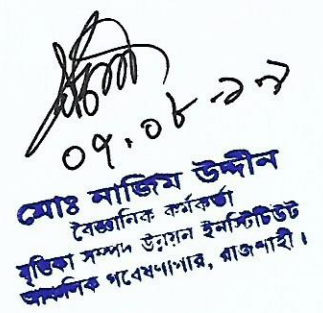 ০৭.০৮.১৭
মোঃ নাজিম উদ্দীন
বৈজ্ঞানিক কর্মকর্তা
মৃত্তিকা সম্পদ উন্নয়ন ইনস্টিটিউট
আঞ্চলিক গবেষণাগার, রাজশাহী।